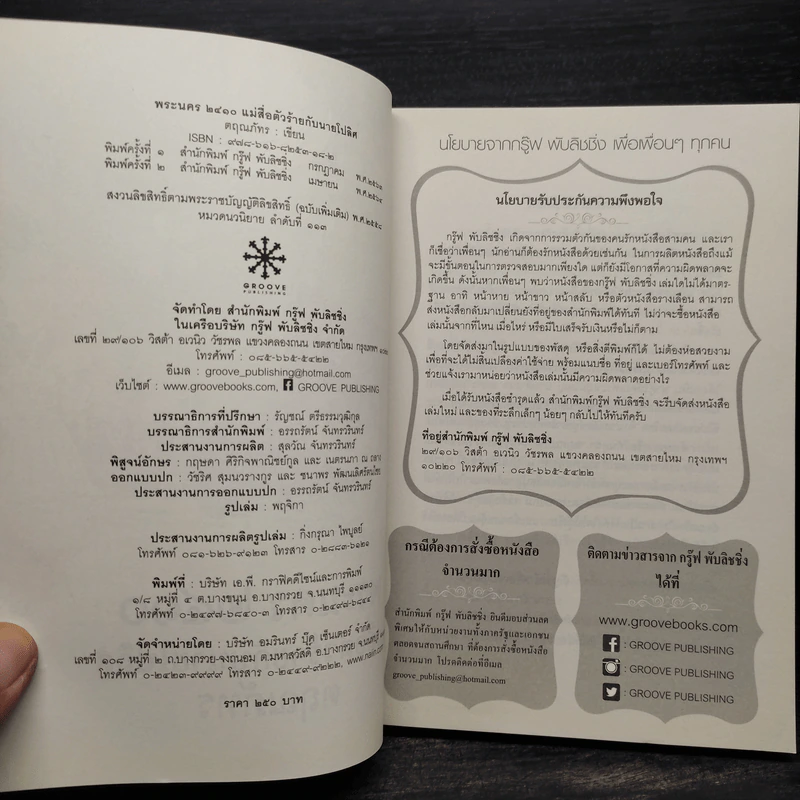 พระนคร ๒๔๑๐ แม่สื่อตัวร้ายกับนายโปลิศ
ตฤณภัทร : เขียน
ISBN : ๙๗๘-๖๑๖-๘๒๕๓-๑๘-๒
พิมพ์ครั้งที่ ๑ สำนักพิมพ์ กรู๊ฟ พับลิชชิ่ง กรกฎาคม พ.ศ.๒๕๖๓
พิมพ์ครั้งที่ ๒ สำนักพิมพ์ กรู๊ฟ พับลิชชิ่ง เมษายน พ.ศ.๒๕๖๔
สงวนลิขสิทธิ์ตามพระราชบัญญัติลิขสิทธิ์ (ฉบับเพิ่มเติม) พ.ศ.๒๕๕๘
หมวดนวนิยาย ลำดับที่ ๑๑๓
GROOVE
PUBLISHING
จัดทำโดย สำนักพิมพ์ กรู๊ฟ พับลิชชิ่ง
ในเครือบริษัท กรู๊ฟ พับลิชชิ่ง จำกัด
เลขที่ ๒๙/๑๐๖ วิสต้า อเวนิว วัชรพล แขวงคลองถนน เขตสายไหม กรุงเทพฯ ๑๐๒๒๐
โทรศัพท์ : ๐๘๕-๖๖๕-๕๔๒๒
อีเมล : groove_publishing@hotmail.com
เว็บไซต์ : www.groovebooks.com, GROOVE PUBLISHING
บรรณาธิการที่ปรึกษา : รัญชณ์ ตรีธรรมวุฒิกุล
บรรณาธิการสำนักพิมพ์ : อรรถรัตน์ จันทรวรินทร์
ประสานงานการผลิต : สุลวัณ จันทรวรินทร์
พิสูจน์อักษร : กฤษดา ศิริกิจพาณิชย์กูล และ เนตรนภา ณ ถลาง
ออกแบบปก : วัชริศ สุมนวรางกูร และ ชนาพร พัฒนเลิศรัตนไชย
ประสานงานการออกแบบปก : อรรถรัตน์ จันทรวรินทร์
รูปเล่ม : พฤจิกา
ประสานงานการผลิตรูปเล่ม : กิ่งกรุณา ไพบูลย์
โทรศัพท์ ๐๘๑-๖๒๖-๙๑๒๓ โทรสาร ๐-๒๘๘๓-๖๑๒๑
พิมพ์ที่ : บริษัท เอ.พี. กราฟิคดีไซน์และการพิมพ์
๑/๘ หมู่ที่ ๔ ต.บางขนุน อ.บางกรวย จ.นนทบุรี ๑๑๑๓๐
โทรศัพท์ ๐-๒๔๙๗-๖๘๔๐-๓ โทรสาร ๐-๒๔๙๗-๖๘๔๔
จัดจำหน่ายโดย : บริษัท อมรินทร์ บุ๊ค เซ็นเตอร์ จำกัด
เลขที่ ๑๐๘ หมู่ที่ ๒ ถ.บางกรวย-จงถนอม ต.มหาสวัสดิ์ อ.บางกรวย จ.นนทบุรี
โทรศัพท์ ๐-๒๔๒๓-๙๙๙๙ โทรสาร ๐-๒๔๔๙-๙๒๒๒, www.naiin.com
ราคา ๒๕๐ บาท
นโยบายจากกรู๊ฟ พับลิชชิ่ง เพื่อเพื่อนๆ ทุกคน
นโยบายรับประกันความพึงพอใจ
กรู๊ฟ พับลิชชิ่ง เกิดจากการรวมตัวกันของคนรักหนังสือสามคน และเรา
ก็เชื่อว่าเพื่อนๆ นักอ่านก็ต้องรักหนังสือด้วยเช่นกัน ในการผลิตหนังสือถึงแม้
จะมีขั้นตอนในการตรวจสอบมากเพียงใด แต่ก็ยังมีโอกาสที่ความผิดพลาดจะ
เกิดขึ้น ดังนั้นหากเพื่อนๆ พบว่าหนังสือของกรู๊ฟ พับลิชชิ่ง เล่มใดไม่ได้มาตร-
ฐาน อาทิ หน้าหาย หน้าขาว หน้าสลับ หรือตัวหนังสือรางเลือน สามารถ
ส่งหนังสือกลับมาเปลี่ยนยังที่อยู่ของสำนักพิมพ์ได้ทันที ไม่ว่าจะซื้อหนังสือ
เล่มนั้นจากที่ไหน เมื่อไหร่ หรือมีใบเสร็จรับเงินหรือไม่ก็ตาม
โดยจัดส่งมาในรูปแบบของพัสดุ หรือสิ่งตีพิมพ์ก็ได้ ไม่ต้องห่อสวยงาม
เพื่อที่จะได้ไม่สิ้นเปลืองค่าใช้จ่าย พร้อมแนบชื่อ ที่อยู่ และเบอร์โทรศัพท์ และ
ช่วยแจ้งเรามาหน่อยว่าหนังสือเล่มนั้นมีความผิดพลาดอย่างไร
เมื่อได้รับหนังสือชำรุดแล้ว สำนักพิมพ์กรู๊ฟ พับลิชชิ่ง จะรีบจัดส่งหนังสือ
เล่มใหม่ และของที่ระลึกเล็กๆ น้อยๆ กลับไปให้ทันทีครับ
ที่อยู่สำนักพิมพ์ กรู๊ฟ พับลิชชิ่ง
๒๙/๑๐๖ วิสต้า อเวนิว วัชรพล แขวงคลองถนน เขตสายไหม กรุงเทพฯ
๑๐๒๒๐ โทรศัพท์ : ๐๘๕-๖๖๕-๕๔๒๒
กรณีต้องการสั่งซื้อหนังสือ
จำนวนมาก
สำนักพิมพ์ กรู๊ฟ พับลิชชิ่ง ยินดีมอบส่วนลด
พิเศษให้กับหน่วยงานทั้งภาครัฐและเอกชน
ตลอดจนสถานศึกษา ที่ต้องการสั่งซื้อหนังสือ
จำนวนมาก โปรดติดต่อที่อีเมล
groove_publishing@hotmail.com
ติดตามข่าวสารจาก กรู๊ฟ พับลิชชิ่ง
ได้ที่
www.groovebooks.com
: GROOVE PUBLISHING
: GROOVE PUBLISHING
: GROOVE PUBLISHING